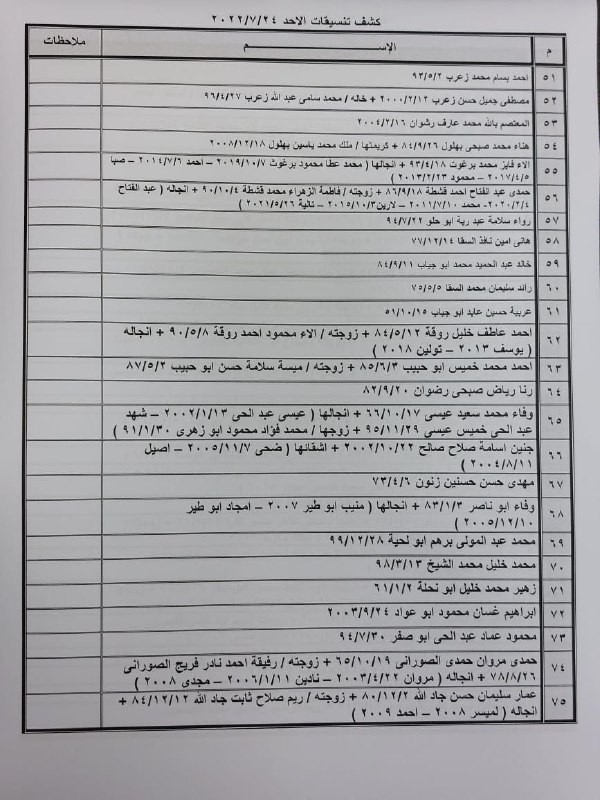 كشف تنسيقات الاحد ٢٠٢٢/٧/٢٤
م الإســـــم ملاحظات
٥١ احمد بسام محمد زعرب ٩٣/٥/٢
٥٢ مصطفى جميل حسن زعرب ٢٠٠٠/٢/١٢ + خاله / محمد سامى عبد الله زعرب ٩٦/٤/٢٧
٥٣ المعتصم بالله محمد عارف رشوان ٢٠٠٤/٢/١٦
٥٤ هناء محمد صبحى بهلول ٨٤/٩/٢٦ + كريمتها / ملك محمد ياسين بهلول ٢٠٠٨/١٢/١٨
٥٥ الاء فايز محمد برغوث ٩٣/٤/١٨ + انجالها ( محمد عطا محمود برغوث ٢٠١٩/١٠/٧ – احمد ٢٠١٤/٧/٦ – صبا
٢٠١٧/٤/٥ – محمود ٢٠١٣/٢/٢٣ )
٥٦ حمدى عبد الفتاح احمد قشطة ٨٦/٩/١٨ + زوجته / فاطمة الزهراء محمد قشطة ٩٠/١٠/٤ + انجاله ( عبد الفتاح
٢٠٢٠/٢/٤- محمد ٢٠١١/٧/١٠ – لارين٢٠١٥/١٠/٣ – تالية ٢٠٢١/٥/٢٦ )
٥٧ رواء سلامة عبد ربة ابو حلو ٩٤/٧/٢٢
٥٨ هانى امين نافذ السقا ٧٧/١٢/١٤
٥٩ خالد عبد الحميد محمد ابو جياب ٨٤/٩/١١
٦٠ رائد سليمان محمد السقا ٧٥/٥/٥
٦١ عربية حسين عابد ابو جياب ٥١/١٠/١٥
٦٢ احمد عاطف خليل روقة ٨٤/٥/١٢ + زوجته / الاء محمود احمد روقة ٩٠/٥/٨ + انجاله
( يوسف ٢٠١٣ – تولين ٢٠١٨ )
٦٣ احمد محمد خميس ابو حبيب ٨٥/٦/٣ + زوجته / ميسة سلامة حسن ابو حبيب ٨٧/٥/٢
٦٤ رنا رياض صبحى رضوان ٨٢/٩/٢٠
٦٥ وفاء محمد سعيد عيسى ٦٦/١٠/١٧ + انجالها ( عيسى عبد الحى ٢٠٠٢/١/١٣ – شهد
عبد الحى خميس عيسى ٩٥/١١/٢٩ + زوجها / محمد فؤاد محمود ابو زهرى ٩١/١/٣٠ )
٦٦ جنين اسامة صلاح صالح ٢٠٠٢/١٠/٢٢ + اشقائها ( ضحى ٢٠٠٥/١١/٧ – اصيل
٢٠٠٤/٨/١١ )
٦٧ مهدى حسن حسنين زنون ٧٣/٤/٦
٦٨ وفاء ابو ناصر ٨٣/١/٣ + انجالها ( منيب ابو طير ٢٠٠٧ – امجاد ابو طير
٢٠٠٥/١٢/١٠ )
٦٩ محمد عبد المولى برهم ابو لحية ٩٩/١٢/٢٨
٧٠ محمد خليل محمد الشيخ ٩٨/٣/١٣
٧١ زهير محمد خليل ابو نحلة ٦١/١/٢
٧٢ ابراهيم غسان محمود ابو عواد ٢٠٠٣/٩/٢٤
٧٣ محمود عماد عبد الحى ابو صقر ٩٤/٧/٣٠
٧٤ حمدى مروان حمدى الصورانى ٦٥/١٠/١٩ + زوجته / رفيقة احمد نادر فريج الصورانى
٧٨/٨/٢٦ + انجاله ( مروان ٢٠٠٣/٤/٢٢ – نادين ٢٠٠٦/١/١١ – مجدى ٢٠٠٨ )
٧٥ عمار سليمان حسن جاد الله ٨٠/١٢/٢ + زوجته / ريم صلاح ثابت جاد الله ٨٤/١٢/١٢ +
انجاله ( لميسر ٢٠٠٨ – احمد ٢٠٠٩ )